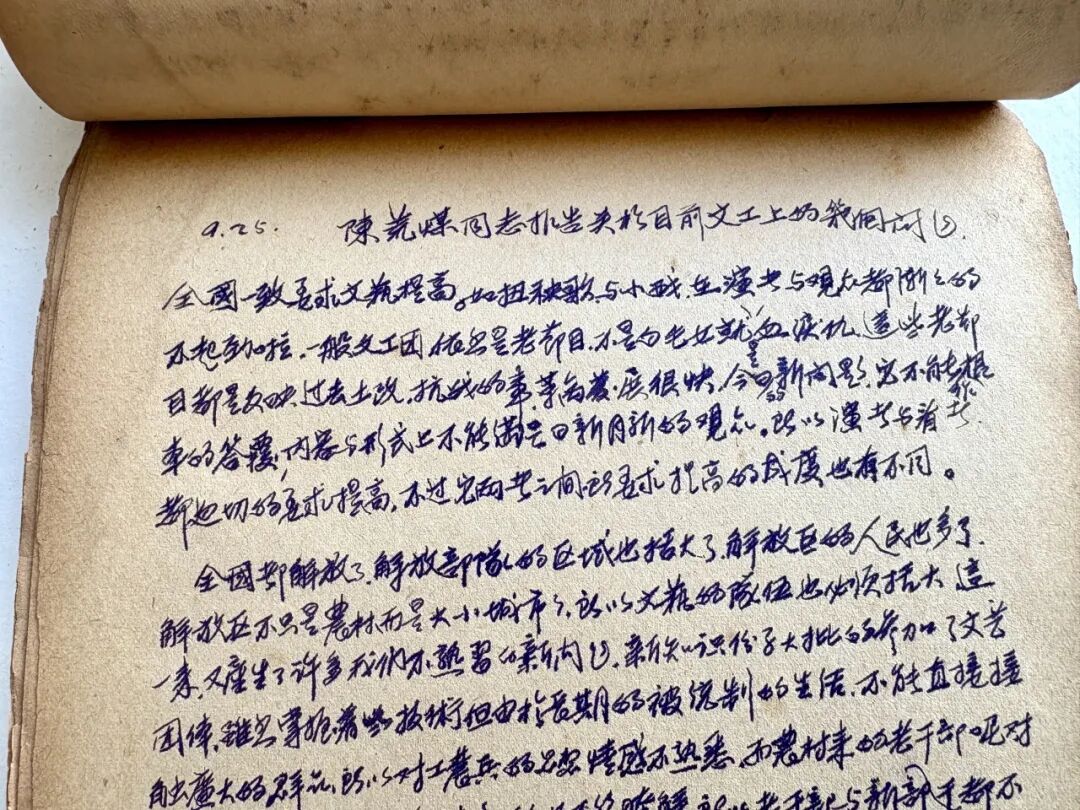 9.25. 陳荒煤同志报告关於目前文工上的几個问题
全國一致要求文藝提高。如扭秧歌与小戏,在演者与观众都漸漸的
不起勁啦,一般文工团依然是老节目,不是白毛女就是血泪仇,這些老节
目都是反映过去土改,抗战的事,革命發展很快,今日的新问题,它不能提
幸的答覆,内容与形式上不能满足日新月新的观众。所以演者与看者
都迫切的要求提高,不过它两者之间所要求提高的成度也有不同。
全國都解放了,解放部隊的区域也括大了,解放区的人民也多了,
解放区不只是農村而是大小城市了,所以文藝的隊伍也必须括大,這
一来,又產生了許多我们不熟習的新问题,新知识份子大批的参加了文艺
团体,雖然掌握着些技術但由於長期的被统制的生活,不能直接接
触廣大的群众,所以对工農兵的思想情感不熟悉,而農村来的老干部呢对
所以老干部与新部干都不